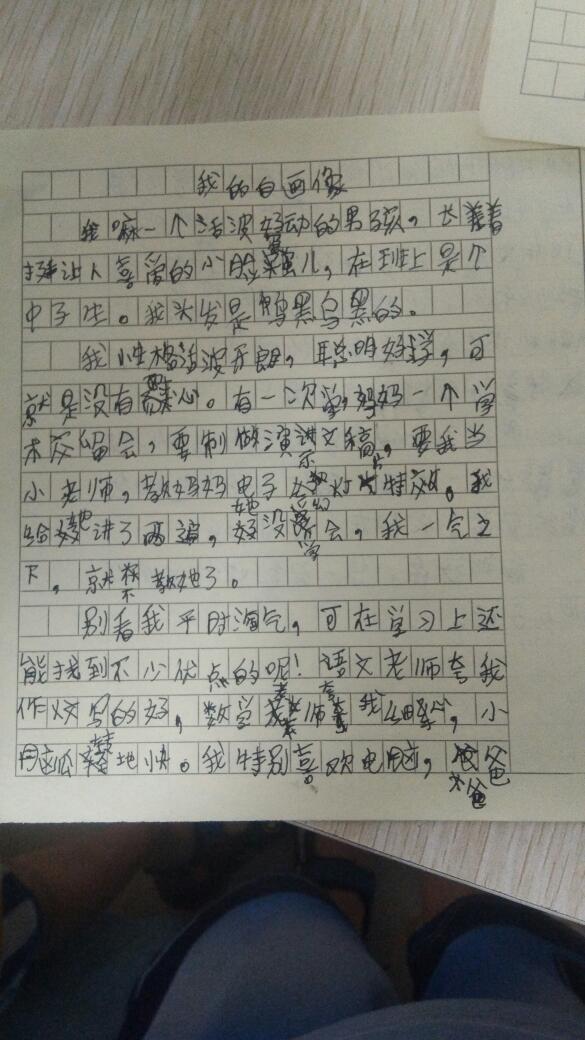 我的自画像
我嘛一个活波好动的男孩，长着
挺让人喜爱的小脸蛋儿，在班上是个
中子生。我头发是乌黑乌黑的。
我性格活波开朗，聪明好学，可
就是没有耐心。有一次，妈妈一个学
术交留会，要制做演讲文稿，要我当
小老师，教妈妈电子幻灯片特效。我
给她讲了两遍，她没学会，我一气之
下，就不教她了。
别看我平时淘气，可在学习上还
能找到不少优点的呢！语文老师夸我
作文写的好，数学老师夸我细心，小
脑瓜转地快。我特别喜欢电脑，爸爸